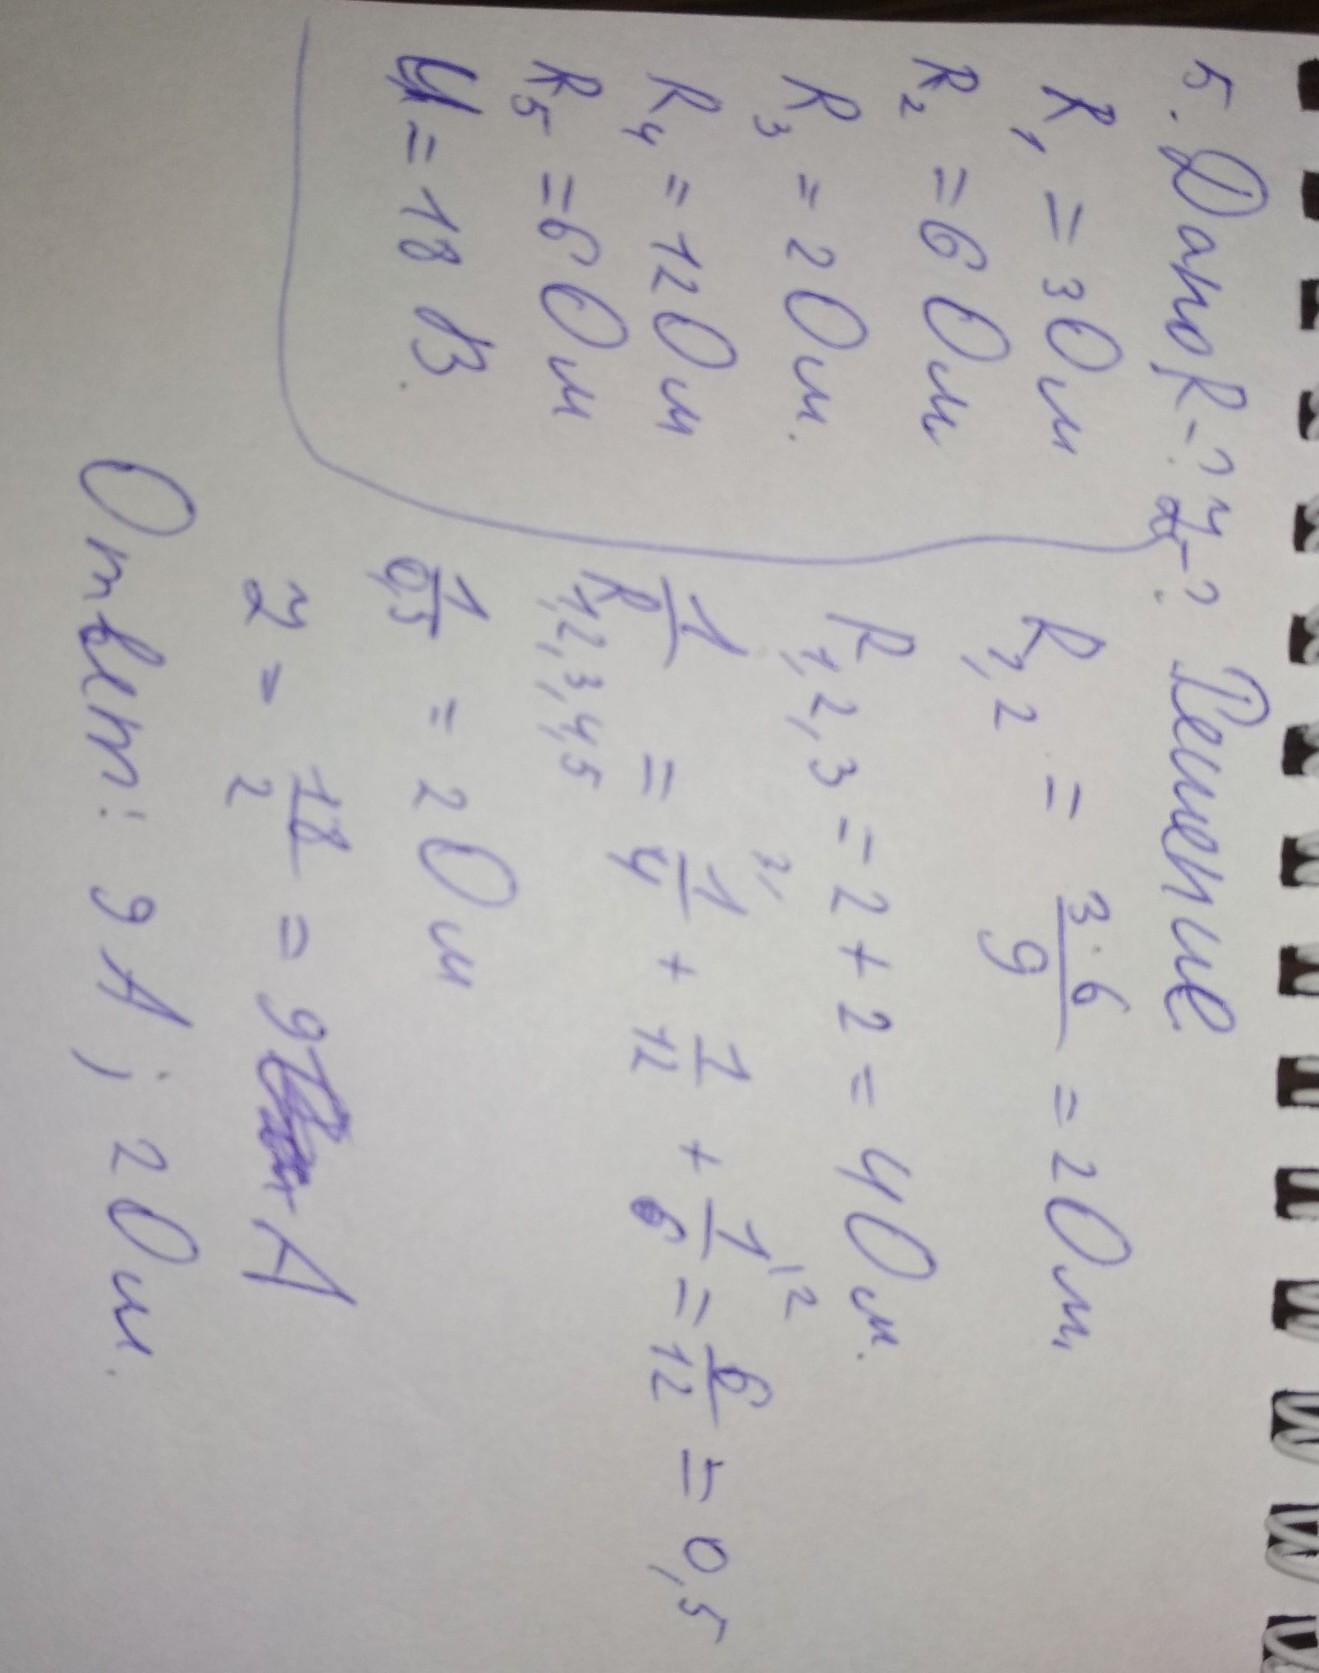 5. Дано R-? I-? Решение
R1 = 3 Ом
R2 = 6 Ом
R3 = 2 Ом.
R4 = 12 Ом
R5 = 6 Ом
U = 18 В.
R1,2 = 3·6/9 = 2 Ом,
R1,2,3 = 2 + 2 = 4 Ом.
1/R1,2,3,4,5 = 1/4 + 1/12 + 1/6 = 6/12 = 0,5
1/0,5 = 2 Ом
I = 18/2 = 9 А
Ответ: 9 А; 2 Ом.